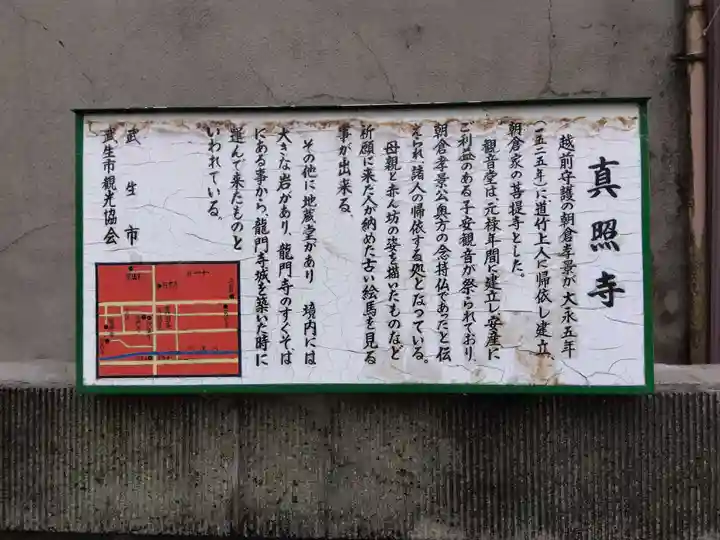 真照寺
越前守護の朝倉孝景が大永五年
(一五二五年)に道竹上人に帰依し建立、
朝倉家の菩提寺とした。
観音堂は元禄年間に建立し、安産に
ご利益のある子安観音が祭られており、
朝倉孝景公奥方の念持仏であったと伝
えられ、諸人の帰依する処となっている。
母親と赤ん坊の姿を描いたものなど
祈願に来た人が納めた古い絵馬を見る
事が出来る。
その他に地蔵堂があり 境内には
大きな岩があり、龍門寺のすぐそば
にある事から、龍門寺城を築いた時に
運んで来たものと
いわれている。
武生市
武生市観光協会